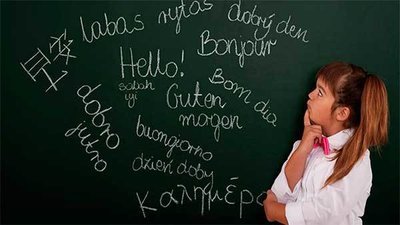 labas rytas
dobrý den
Bonjour
Hello!
sabah
iyi
Bom dia
Guten
magen
dobro
jutro
buongiorno
dzień doby
καλημέρα